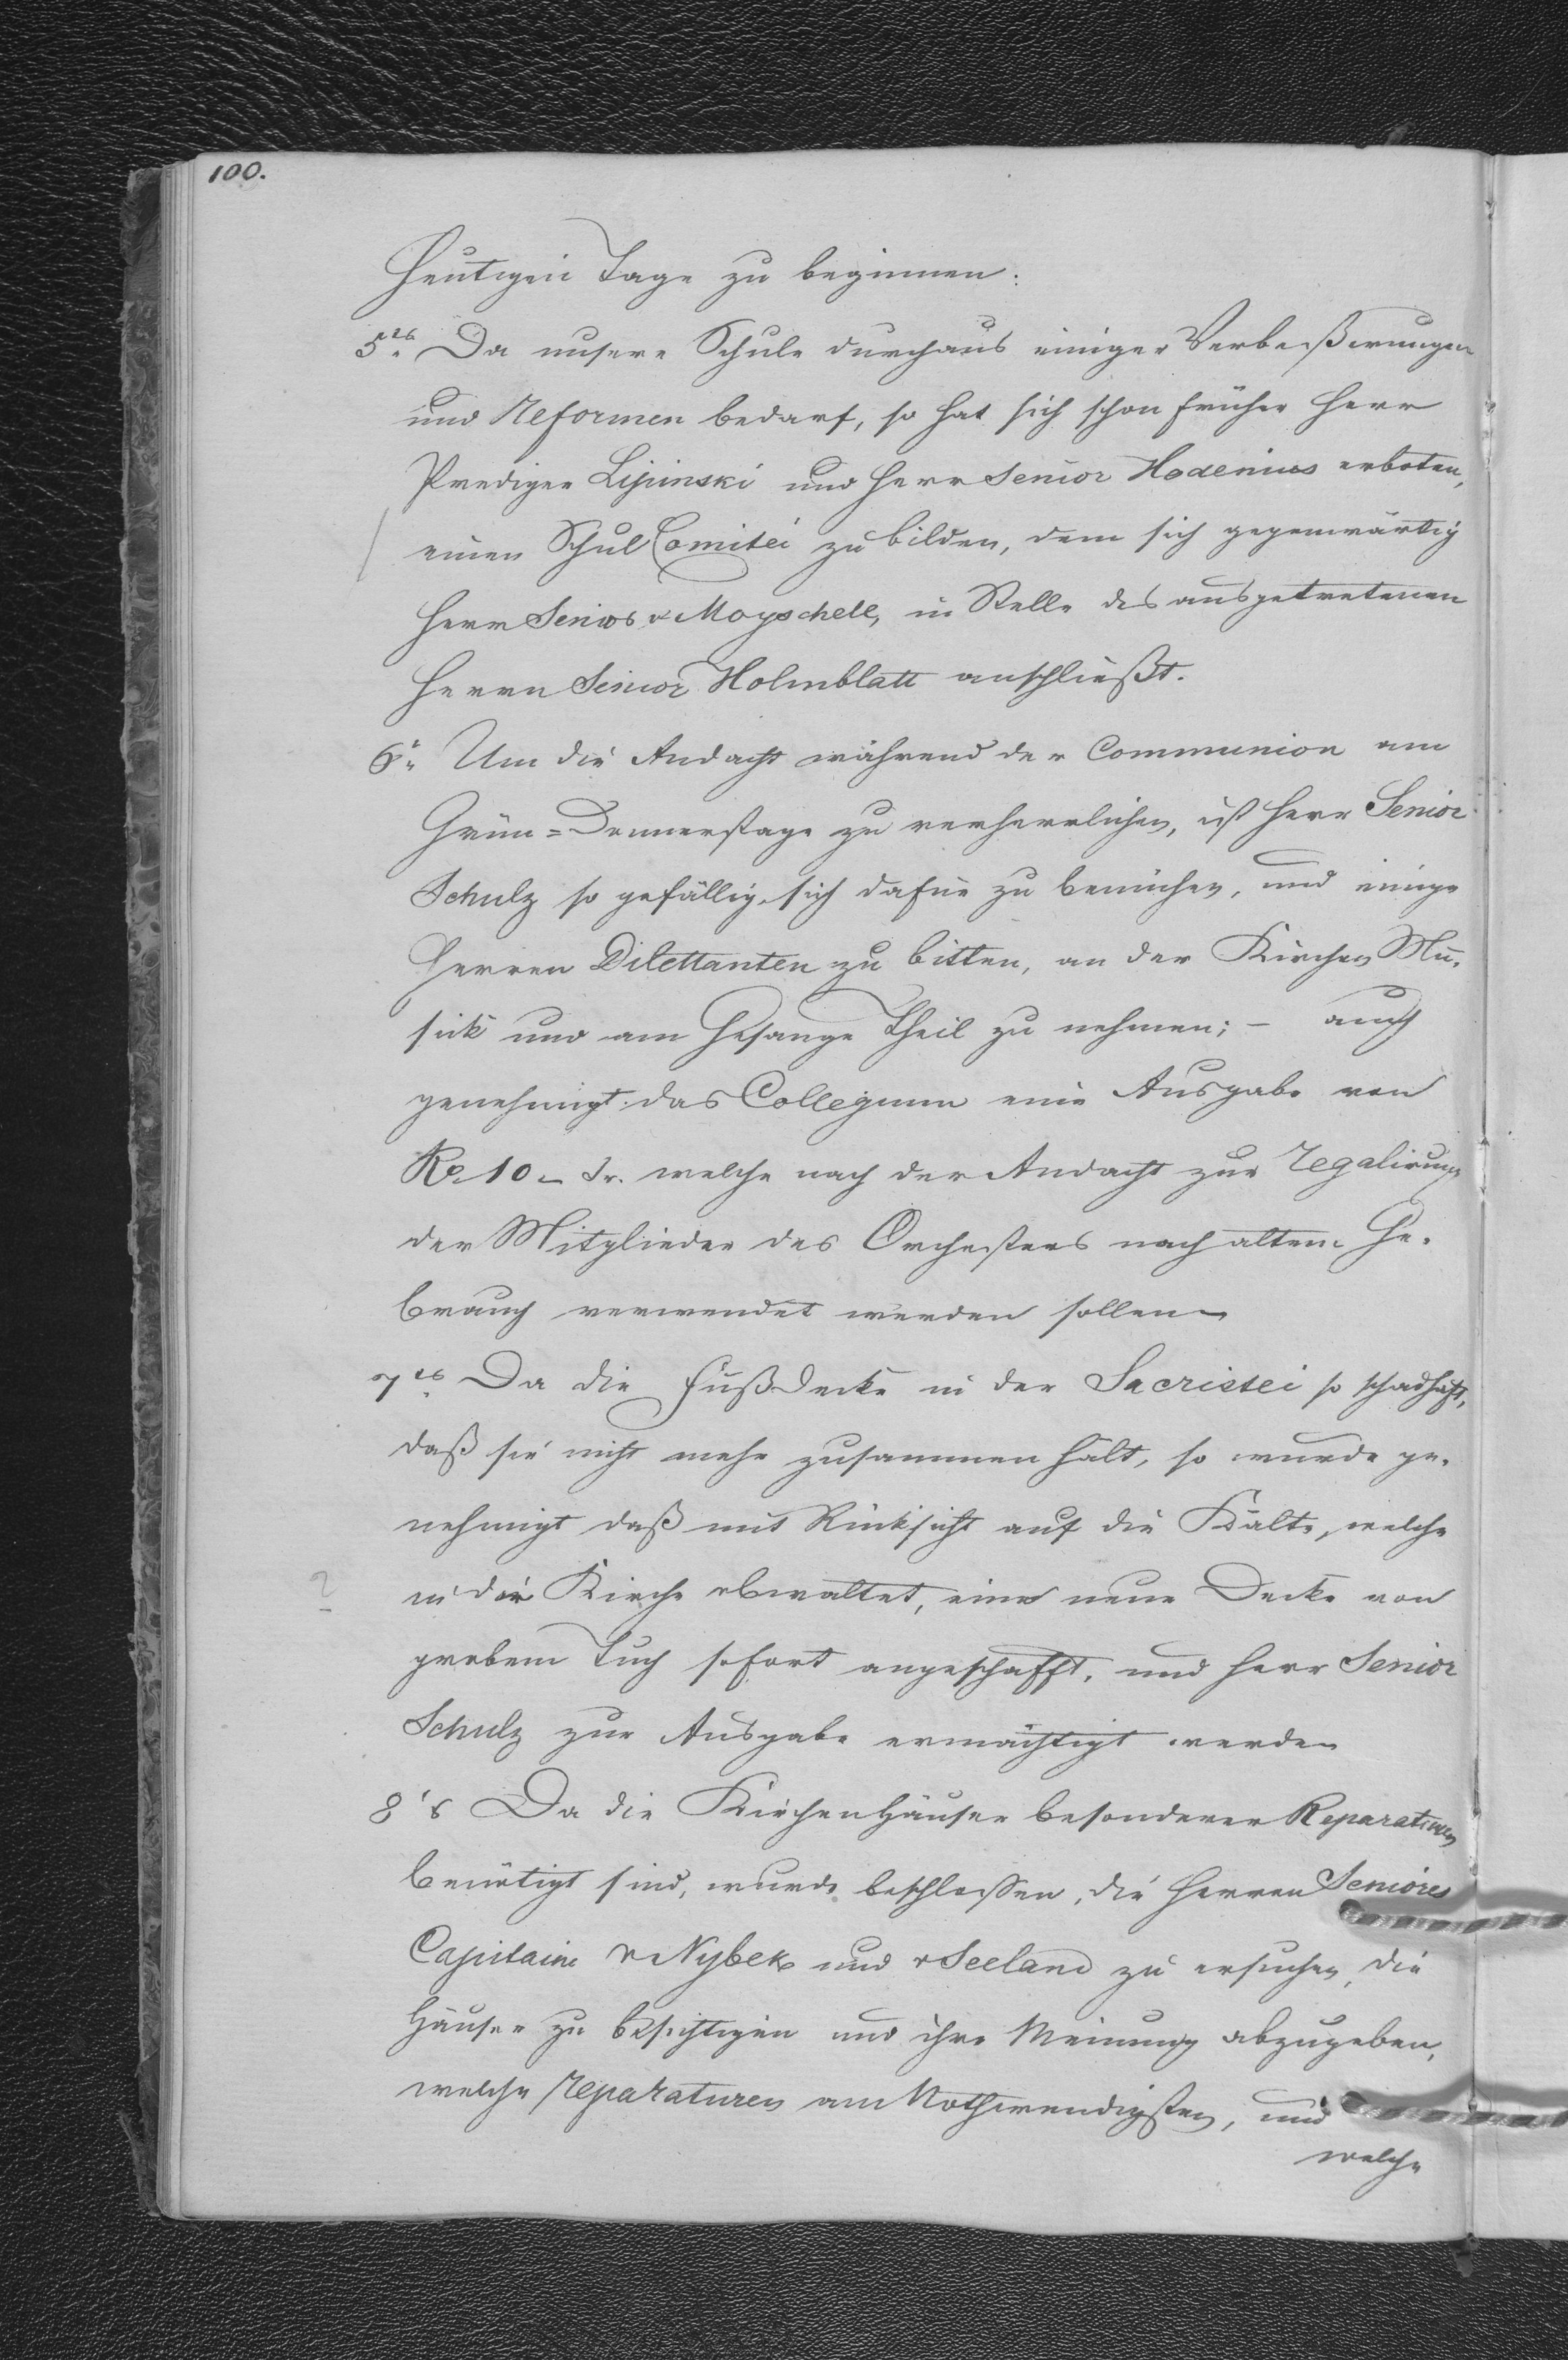 100.
heutigen Tage zu beginnen.
5es. Da unsere Schule durchaus einiger Verbeßerungen
und Reformen bedarf, so hat sich schon früher Herr
Prediger Lipinski und Herr Senior Hodenius erboten,
einen Schul Comitéi zu bilden, dem sich gegenwärtig
Herr Senior v Moyschell, in Stelle des ausgetretenen
Herrn Senior Holmblatt anschließt.
6s. Um die Andacht während der Communion am
Grün=Donnerstage zu verherrlichen, ist Herr Senior
Schulz so gefällig, sich dafür zu bemühen, und einige
Herren Dilettanten zu bitten, an der Kirchen Mu-
sik und am Gesange Theil zu nehmen; – auch
genehmigt das Collegium eine Ausgabe von
10 – welche nach der Andacht zur Regalirung
der Mitglieder des Orchesters nach altem Ge-
brauch verwendet werden sollen –
7es. Da die Fußdecke in der Sacristei so schadhaft,
daß sie nicht mehr zusammen hält, so wurde ge-
nehmigt daß mit Rücksicht auf die Kälte, welche
in der Kirche obwaltet, eine neue Decke von
grobem Tuch sofort angeschafft, und Herr Senior
Schulz zur Ausgabe ermächtigt werde
8's Da die Kirchenhäuser besonderer Reparaturen
benötigt sind, wurde beschlossen, die Herren Seniores
Capitaine v Nybek und v Seeland zu ersuchen, die
Häuser zu besichtigen und ihre Meinung abzugeben,
welche reparaturen am Nothwendigsten, und
welche